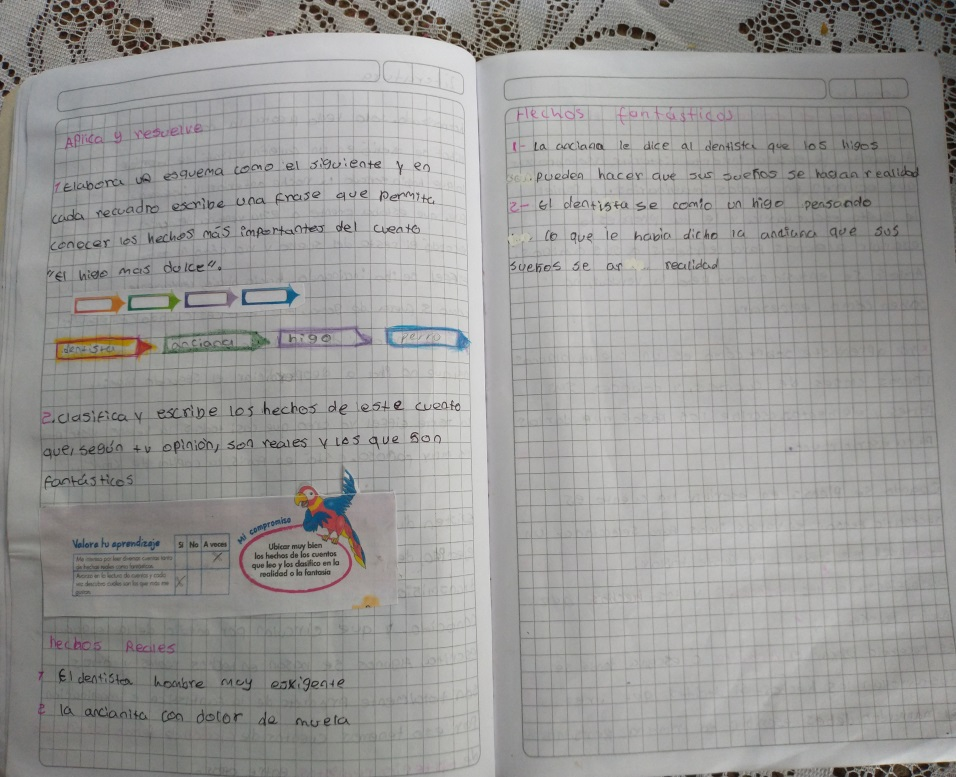 Aplica y resuelve
1 Elabora un esquema como el siguiente y en
cada recuadro escribe una frase que permita
conocer los hechos más importantes del cuento
"El higo mas dulce".
dentista anciana higo perro
2. clasifica y escribe los hechos de este cuento
que, según tu opinion, son reales y los que son
fantásticos
Valora tu aprendizaje Sí No A veces
Mi compromiso
Ubicar muy bien
los hechos de los cuentos
que leo y los clasifico en la
realidad o la fantasía
hechos Reales
1 El dentista hombre muy exkigente
2 la ancianita con dolor de muela
Hechos fantásticos
1- La anciana le dice al dentista que los higos
pueden hacer que sus sueños se hagan realidad
2- El dentista se comio un higo pensando
lo que le habia dicho la anciana que sus
sueños se ar realidad